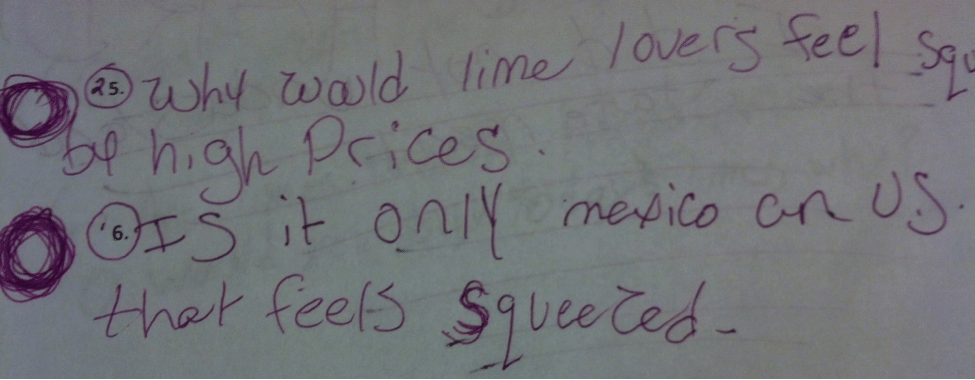 25. Why would lime lovers feel squ
by high Prices.
6. Is it only mexico an U.S.
that feels squeezed.